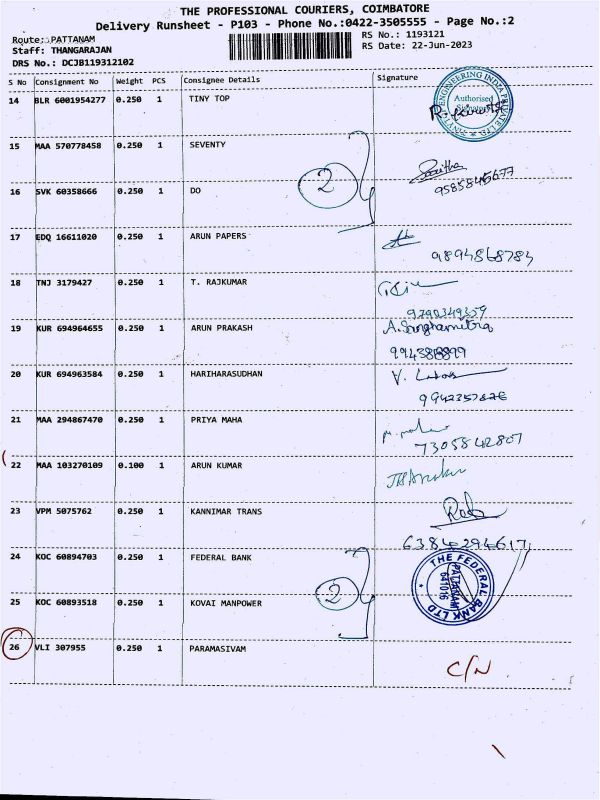 THE PROFESSIONAL COURIERS, COIMBATORE
Delivery Runsheet - P103 - Phone No.:0422-3505555 - Page No.:2
Route: PATTANAM
Staff: THANGARAJAN
DRS No.: DCJB119312102
RS No.: 1193121
RS Date: 22-Jun-2023
S No Consignment No Weight PCS Consignee Details Signature
14 BLR 6001954277 0.250 1 TINY TOP
ENGINEERING INDIA PRIVATE LTD.
Authorised
15 MAA 570778458 0.250 1 SEVENTY
2
16 SVK 60358666 0.250 1 DO
17 EDQ 16611020 0.250 1 ARUN PAPERS
9894868784
18 TNJ 3179427 0.250 1 T. RAJKUMAR
9790349359
19 KUR 694964655 0.250 1 ARUN PRAKASH A. Sanghamitra
20 KUR 694963584 0.250 1 HARIHARASUDHAN
21 MAA 294867470 0.250 1 PRIYA MAHA
7305842807
22 MAA 103270109 0.100 1 ARUN KUMAR
23 VPM 5075762 0.250 1 KANNIMAR TRANS
6384294617
24 KOC 60894703 0.250 1 FEDERAL BANK
THE FEDERAL BANK LTD
PATTANAM
641016
2
25 KOC 60893518 0.250 1 KOVAI MANPOWER
26 VLI 307955 0.250 1 PARAMASIVAM
C/N